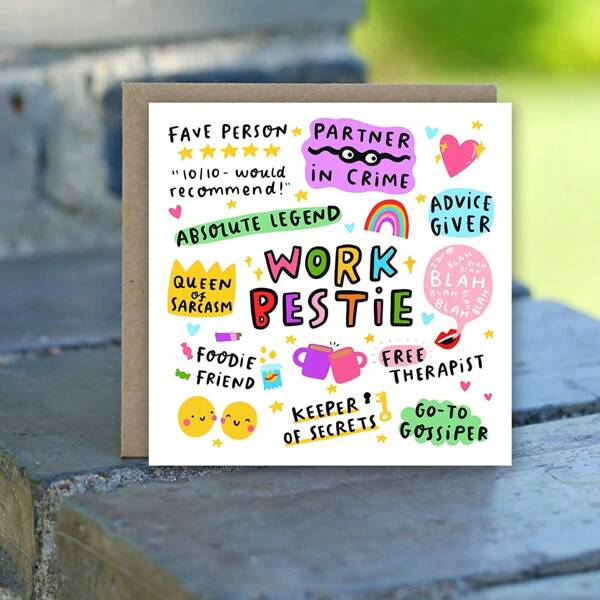 FAVE PERSON
"10/10 - would
recommend!"
PARTNER
in CRiME
ABSOLUTE LEGEND
ADVICE
GiVER
WORK
BESTiE
QUEEN
OF
SARCASM
BLAH
BLAH
BLAH
BLAH
BLAH
BLAH
BLAH
BLAH
FOODiE
FRiEND
FREE
THERAPiST
KEEPER
OF SECRETS
GO-TO
GOSSiPER